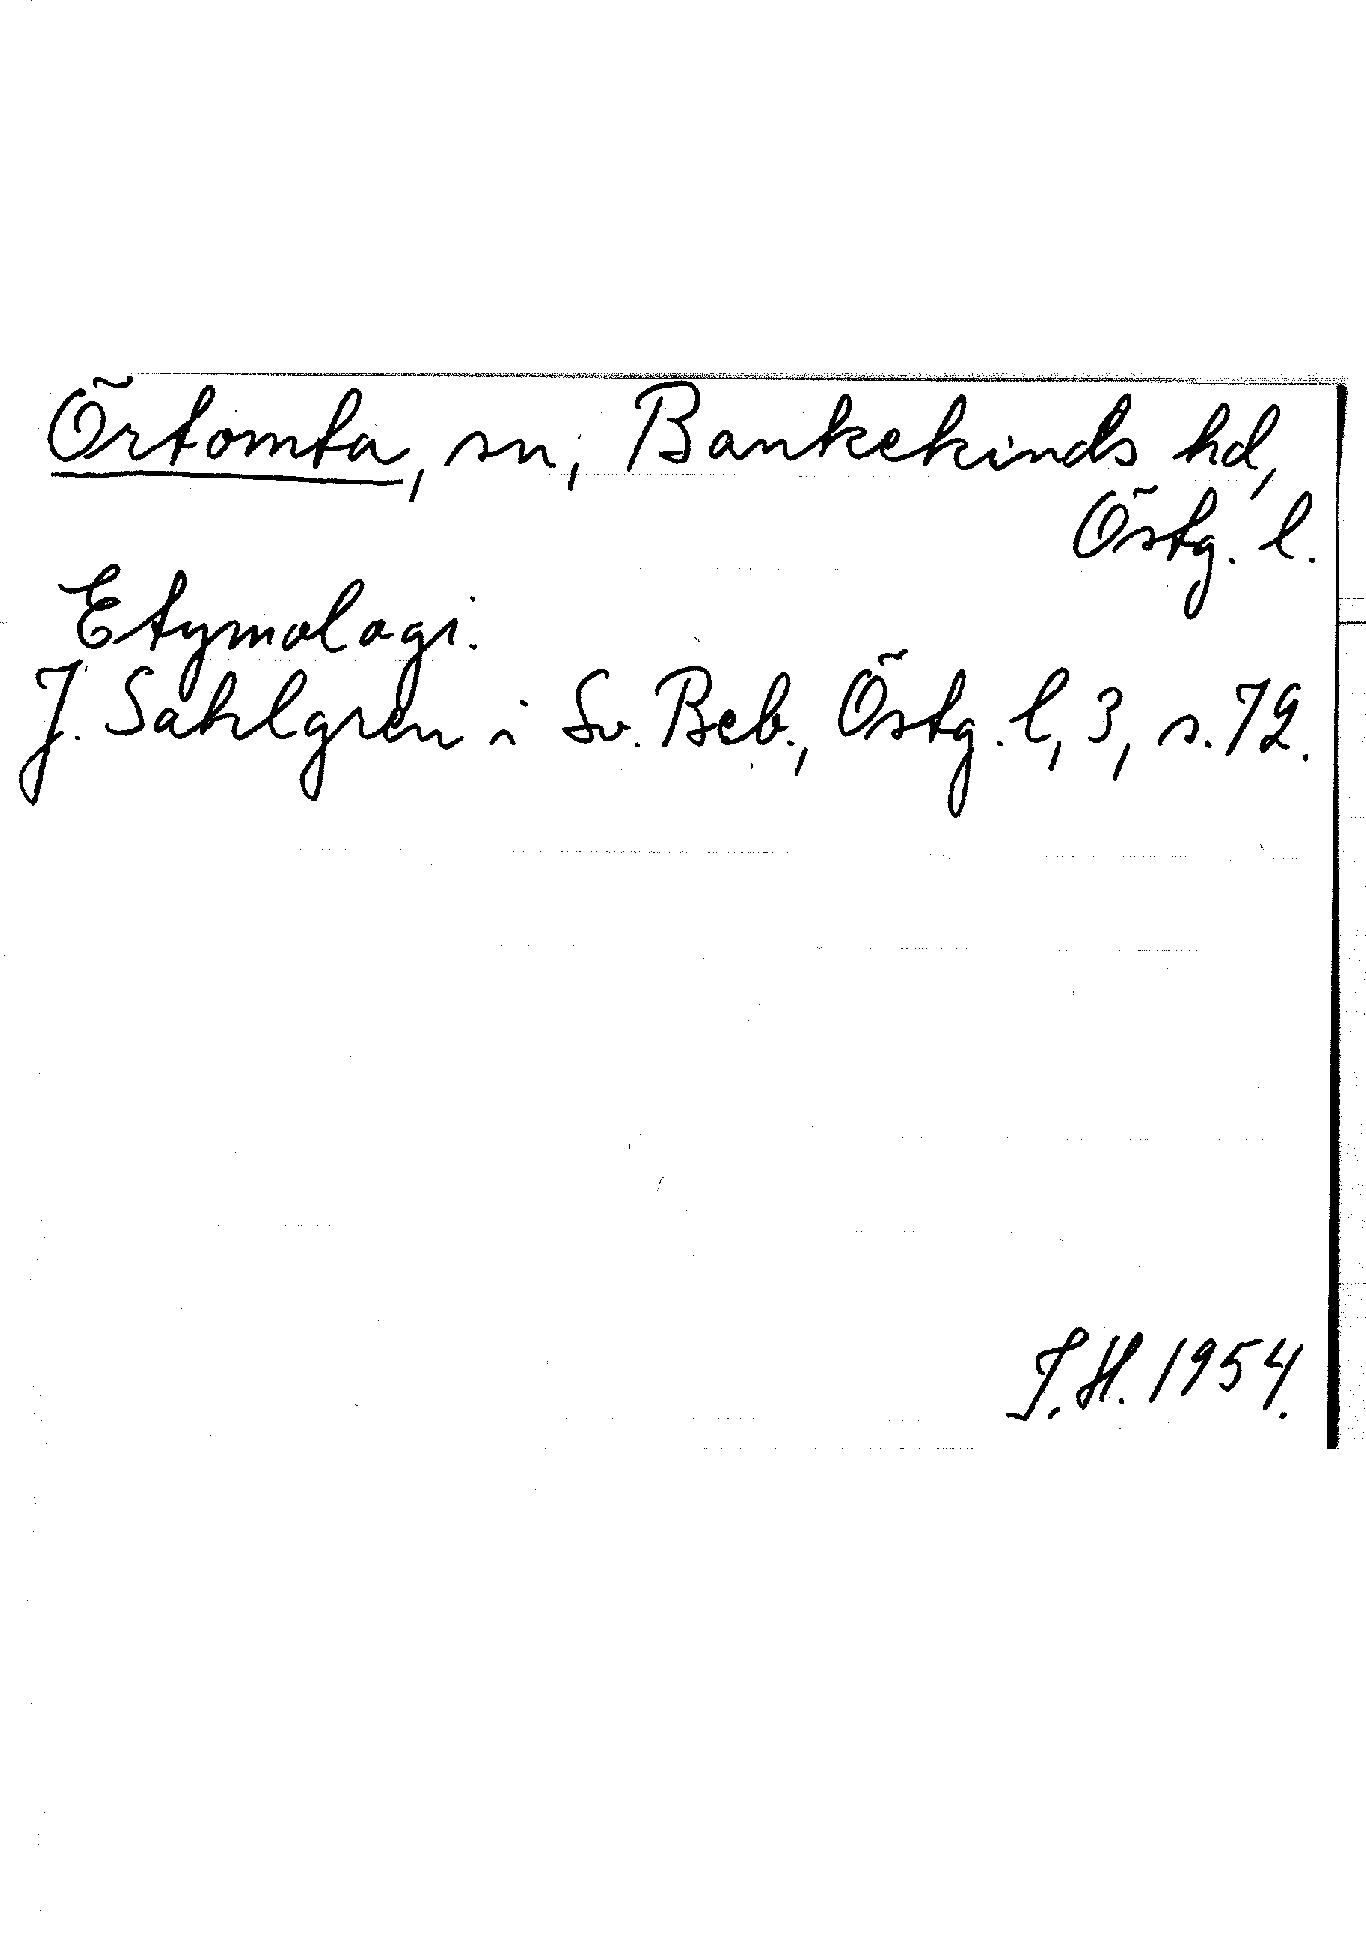 Örtomta, sn, Bankekinds hd,
Östg. l.
Etymologi.
J. Sahlgren i Sv. Beb., Östg. l, 3, s. 72.
J.H. 1954.